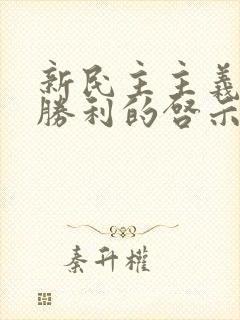 新民主主義
勝利的啓示
秦升權